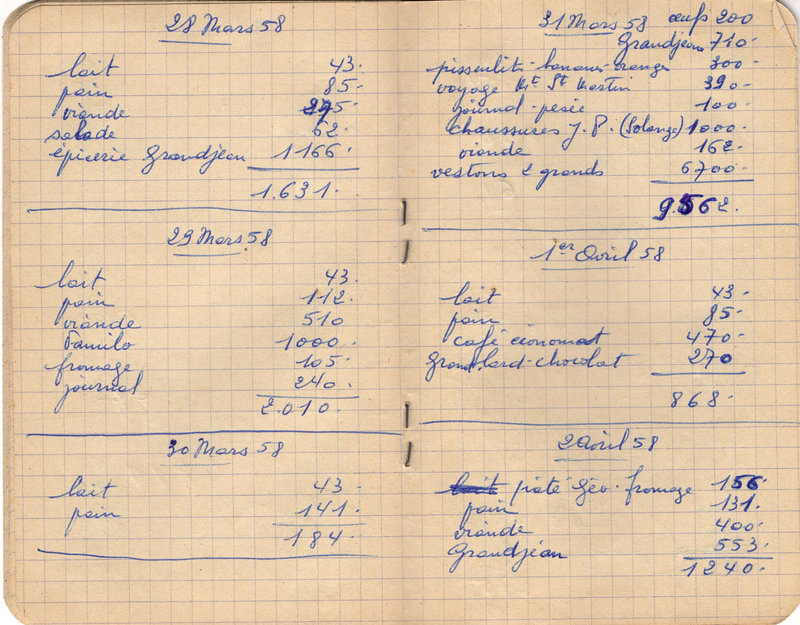 28 Mars 58
lait 43.
pain 85.
viande 275.
salade 62.
épicerie Grandjean 1166.
1.631.
29 Mars 58
lait 43.
pain 112.
viande 510
1000.
fromage 105.
journal 240.
2.010.
30 Mars 58
lait 43-
pain 141.
184.
31 Mars 58 œufs 200
Grandjean 710-
pissenlits-bananes-oranges 300-
voyage Mt St Martin 390-
journal-pesée 100-
chaussures J.P. (Solange) 1000-
viande 162-
vestons 2 grands 6700-
9.562.
1er Avril 58
lait 43-
pain 85-
café économat 470-
Grand. lard-chocolat 270
868.
2 Avril 58
lait pâté Géo. fromage 156
pain 131.
viande 400.
Grandjean 553.
1240.